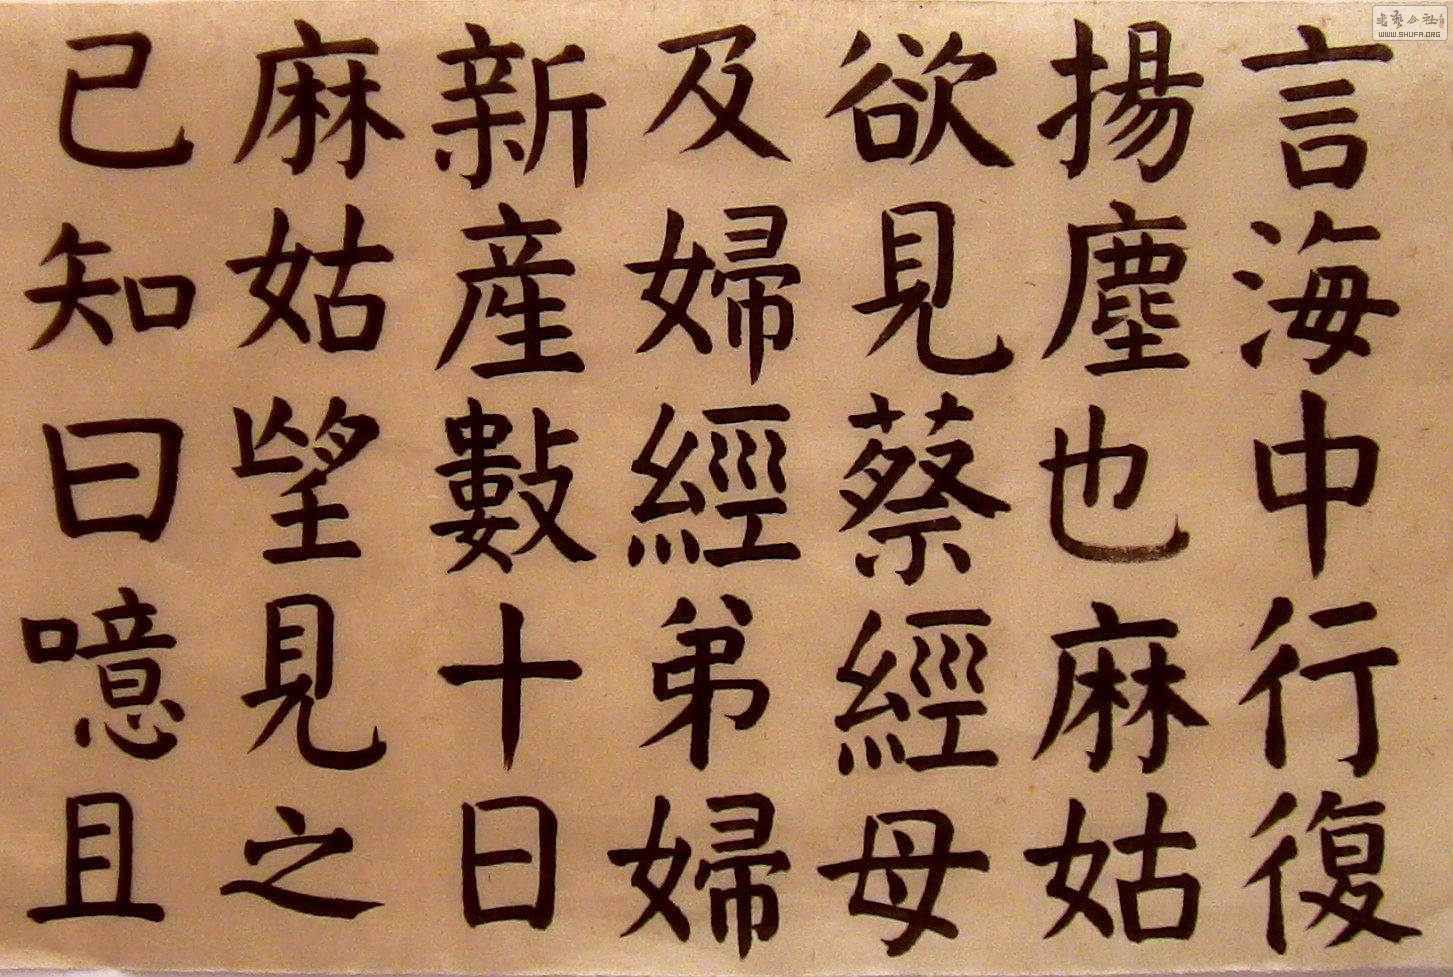 言海中行復
揚塵也麻姑
欲見蔡經母
及婦經弟婦
新產數十日
麻姑望見之
已知曰噫且
WWW.SHUFA.ORG